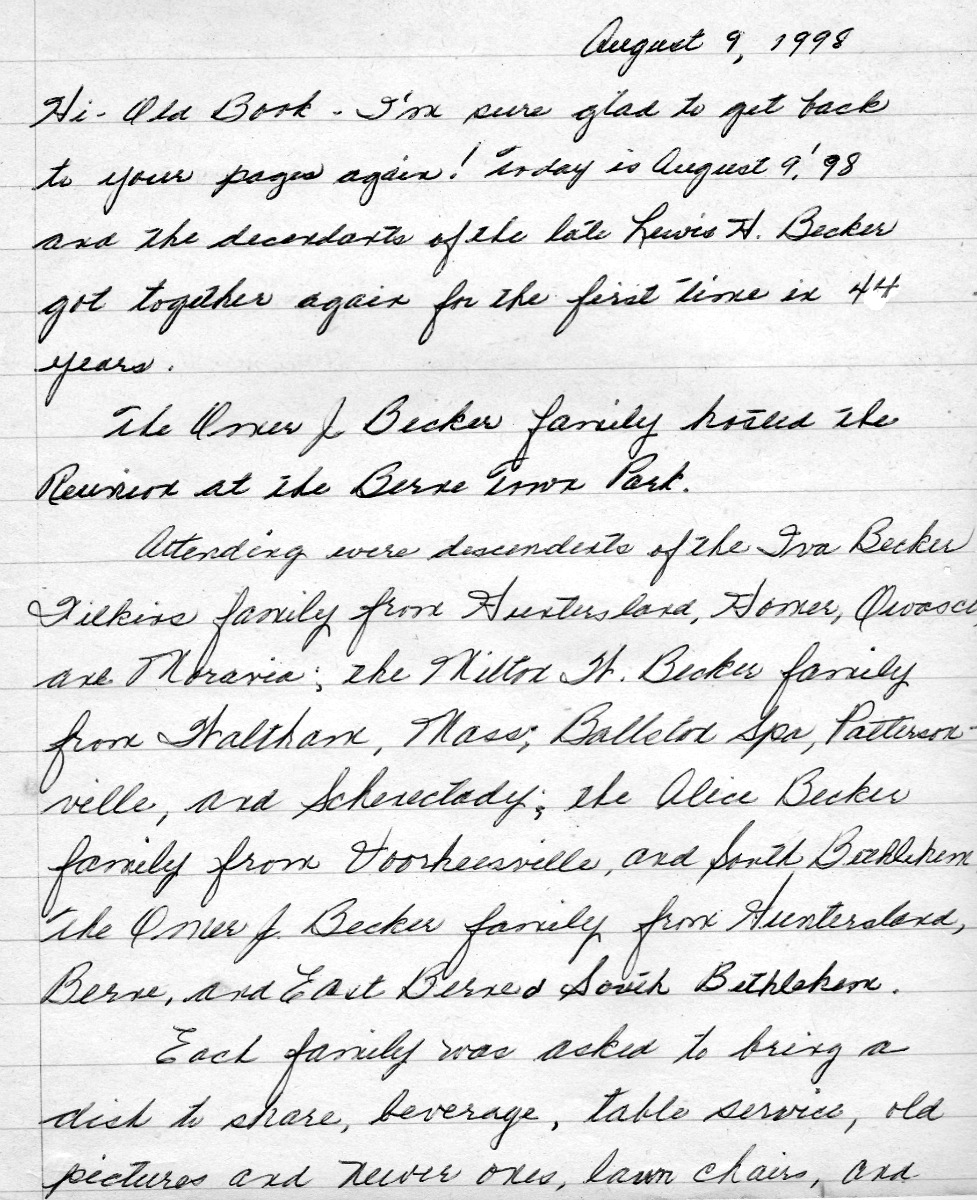 August 9, 1998
Hi - Old Book - I'm sure glad to get back
to your pages again! Today is August 9, '98
and the decendants of the late Lewis H. Becker
got together again for the first time in 44
years.
The Omer J Becker family hosted the
Reunion at the Berne Town Park.
Attending were descendents of the Iva Becker
Filkins family from Huntersland, Homer, Owasco
and Moravia; the Milton W. Becker family
from Waltham, Mass; Ballston Spa, Patterson-
ville, and Schenectady; the Alice Becker
family from Voorheesville, and South Bethlehem
The Omer J. Becker family from Huntersland,
Berne, and East Berne & South Bethlehem.
Each family was asked to bring a
dish to share, beverage, table service, old
pictures and newer ones, lawn chairs, and